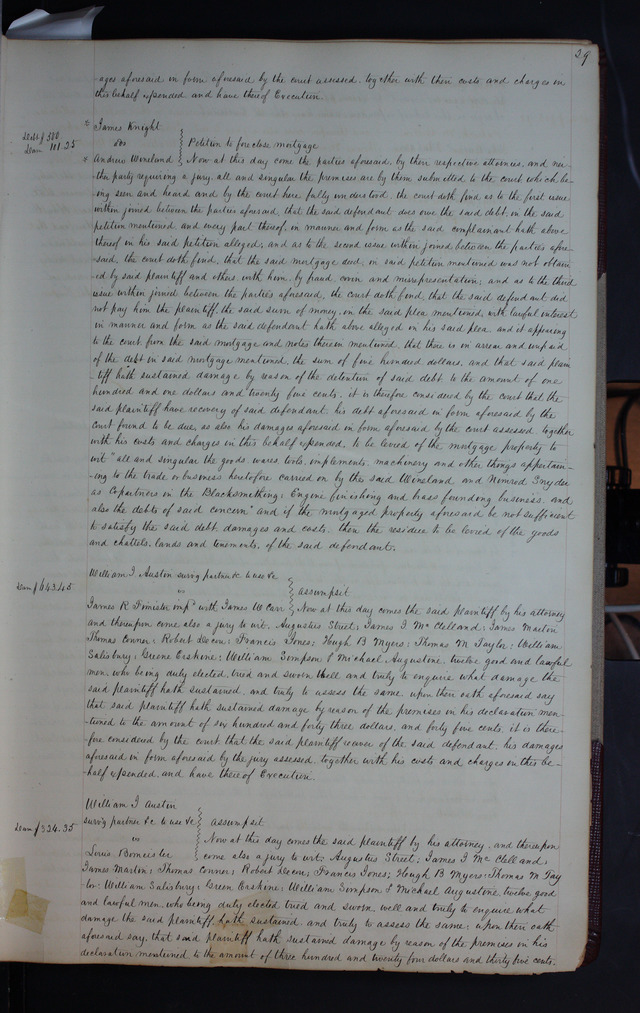 29
-ages aforesaid in form aforesaid by the court assessed, together with their costs and charges in
this behalf expended and have thereof Execution.
Debt $500
Dam 101.25
* James Knight
vs
Petition to foreclose mortgage
* Andrew Wineland
Now at this day come the parties aforesaid, by their respective attornies, and nei-
ther party requiring a jury, all and singular the premises are by them submitted to the court which be-
ing seen and heard and by the court here fully understood, the court doth find as to the first issue
within joined between the parties aforesaid, that the said defendant does owe the said debt, in the said
petition mentioned and every part thereof, in manner and form as the said complainant hath above
thereof in his said petition alleged; and as to the second issue within joined between the parties afore-
said, the court doth find, that the said mortgage deed, in said petition mentioned was not obtain-
ed by said plaintiff and others with him, by fraud, covin and misrepresentation; and as to the third
issue within joined between the parties aforesaid, the court doth find, that the said defendant did
not pay him the plaintiff, the said sum of money, in the said plea mentioned, with lawful interest
in manner and form as the said defendant hath above alleged in his said plea and it appearing
to the court from the said mortgage and notes therein mentioned, that there is in arrear and unpaid
of the debt in said mortgage mentioned, the sum of five hundred dollars, and that said plain
-tiff hath sustained damage by reason of the detention of said debt, to the amount of one
hundred and one dollars and twenty five cents, it is therefore considered by the court that the
said plaintiff have recovery of said defendant, his debt aforesaid in form aforesaid by the
court found to be due, as also his damages aforesaid in form aforesaid by the court assessed, together
with his costs and charges in this behalf expended, to be levied of the mortgage property to
wit "all and singular the goods wares, tools, implements, machinery and other things appertain-
-ing to the trade or business heretofore carried on by the said Wineland and Nimrod Snyder
as Copartners in the Blacksmithing, Engine finishing and brass founding business, and
also the debts of said concern" and if the mortgaged property aforesaid be not sufficient
to satisfy the said debt, damages and costs, then the residue to be levied of the goods
and chattels, lands and tenements, of the said defendant.
Dam $643.45
William J Austin surv'g partner &c to use &c
vs
assumpsit
James R imp'd with James W Carr
Now at this day comes the said plaintiff by his attorney
and thereupon come also a jury to wit, Augustus Street; James J McClelland; James Martin
Thomas Connor; Robert; Francis Jones; Hugh B Myers; Thomas M Taylor; William
Salisbury; Greene Erskine; William Simpson & Michael Augustone, twelve good and lawful
men, who being duly elected, tried and sworn well and truly to enquire what damage the
said plaintiff hath sustained, and truly to assess the same upon their oath aforesaid say
that said plaintiff hath sustained damage by reason of the premises in his declaration men-
tioned to the amount of six hundred and forty three dollars, and forty five cents, it is there-
fore considered by the court that the said plaintiff recover of the said defendant, his damages
aforesaid in form aforesaid by the jury assessed, together with his costs and charges in this be-
-half expended, and have thereof Execution.
Dam $324.35
William J Austin
surv'g partner &c to use &c
assumpsit
vs
Now at this day comes the said plaintiff by his attorney, and thereupon
Louis
come also a jury to wit: Augustus Street; James J McClelland;
James Martin; Thomas Connor; Robert; Francis Jones; Hugh B Myers; Thomas M Tay
lor; William Salisbury; Green Erskine; William Simpson & Michael Augustone twelve good
and lawful men, who being duly elected tried and sworn, well and truly to enquire what
damage the said plaintiff hath sustained and truly to assess the same, upon their oath
aforesaid say, that said plaintiff hath sustained damage by reason of the premises in his
declaration mentioned, to the amount of three hundred and twenty four dollars and thirty five cents.